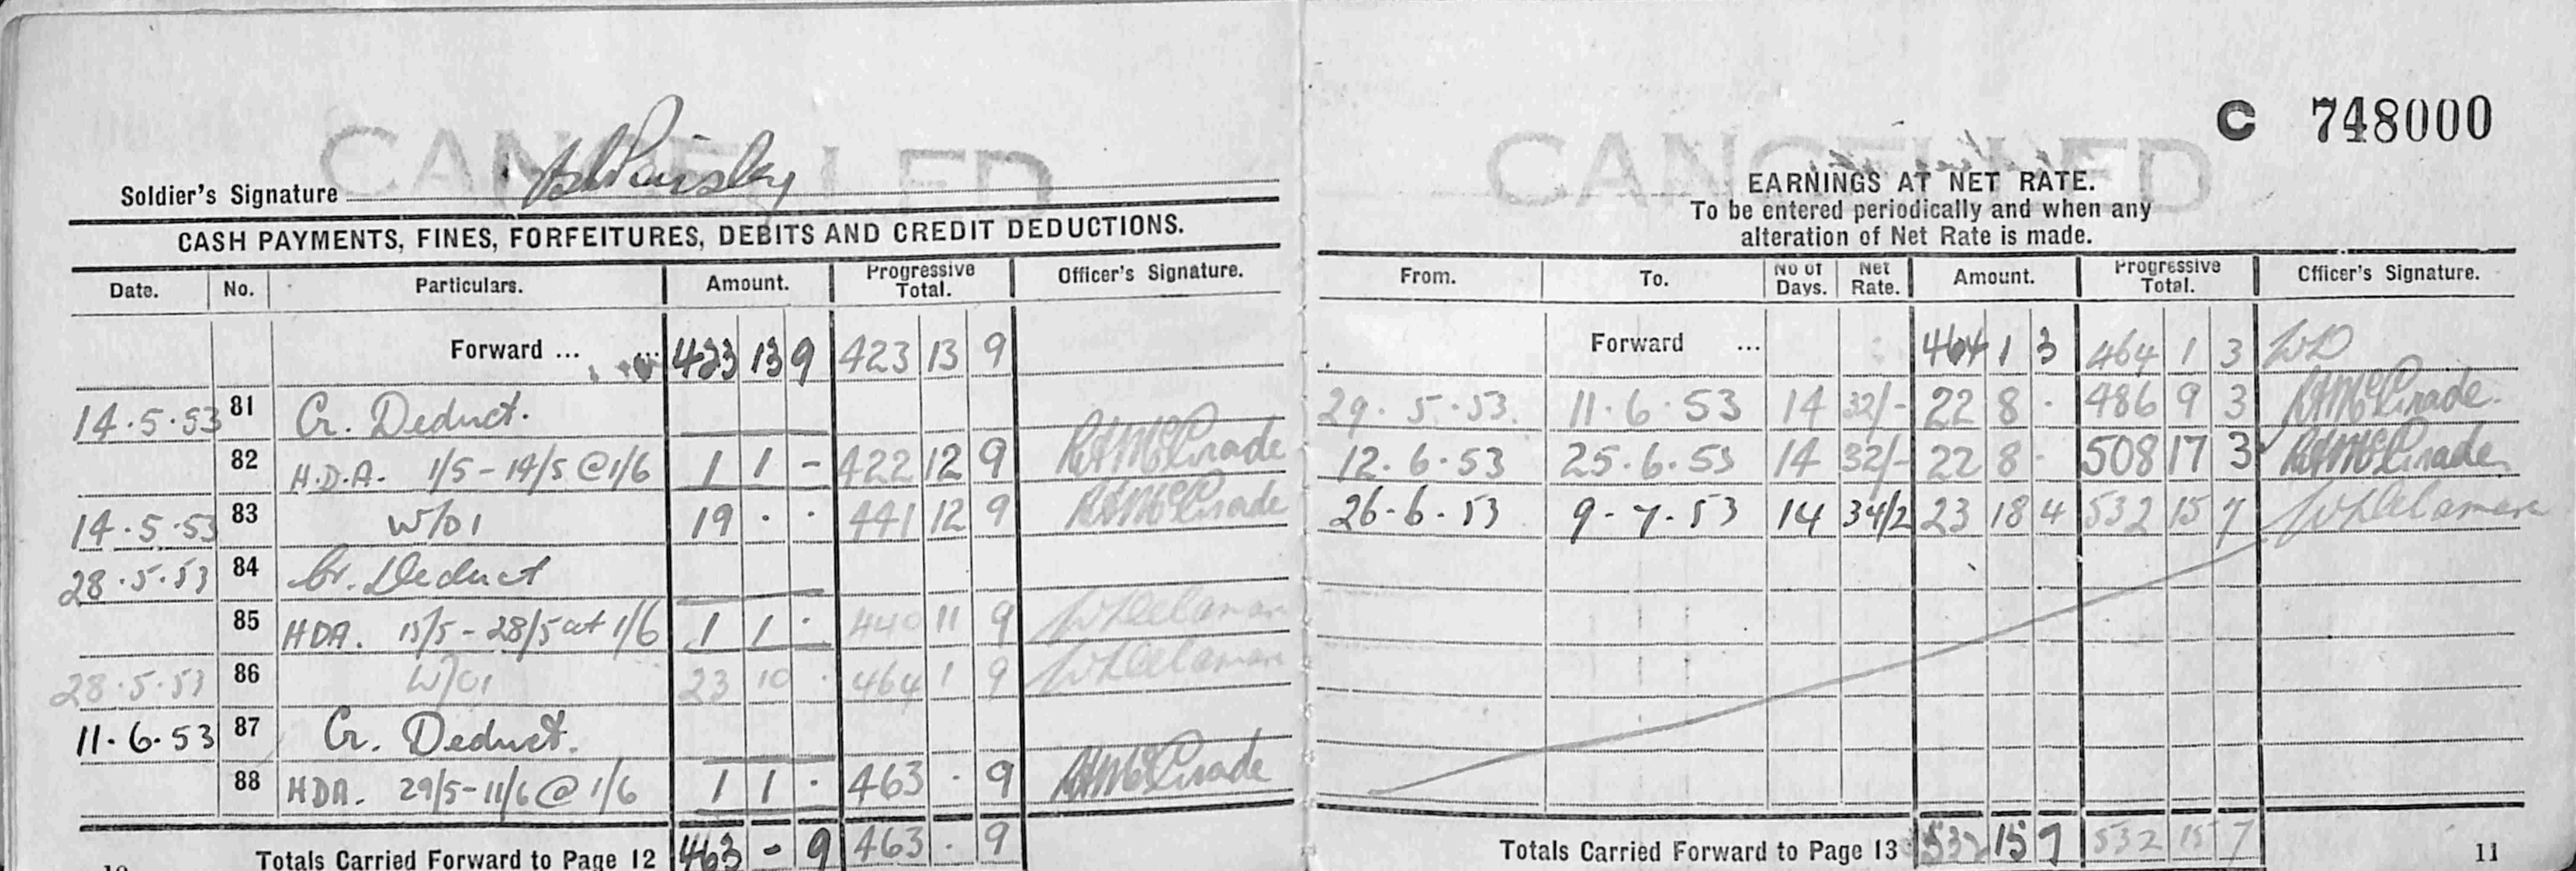 CANCELLED
Soldier's Signature
CASH PAYMENTS, FINES, FORFEITURES, DEBITS AND CREDIT DEDUCTIONS.
Date. No. Particulars. Amount. Progressive Total. Officer's Signature.
Forward ... 423 13 9 423 13 9
14.5.53 81 Cr. Deduct.
82 H.D.A. 1/5 - 14/5 @ 1/6 1 1 - 422 12 9 
14.5.53 83 W/01 19 . . 441 12 9
28.5.53 84 Cr. Deduct
85 HDA. 15/5 - 28/5 at 1/6 1 1 . 440 11 9
28.5.53 86 W/01 23 10 . 464 1 9
11.6.53 87 Cr. Deduct.
88 HDA. 29/5 - 11/6 @ 1/6 1 1 . 463 . 9
Totals Carried Forward to Page 12 463 - 9 463 . 9
C 748000
CANCELLED
EARNINGS AT NET RATE.
To be entered periodically and when any
alteration of Net Rate is made.
From. To. No of Days. Net Rate. Amount. Progressive Total. Officer's Signature.
Forward ... 464 1 3 464 1 3
29.5.53. 11.6.53 14 32/- 22 8 . 486 9 3
12.6.53 25.6.53 14 32/- 22 8 . 508 17 3
26-6-53 9-7-53 14 34/2 23 18 4 532 15 7
Totals Carried Forward to Page 13 532 15 7 532 15 7
11